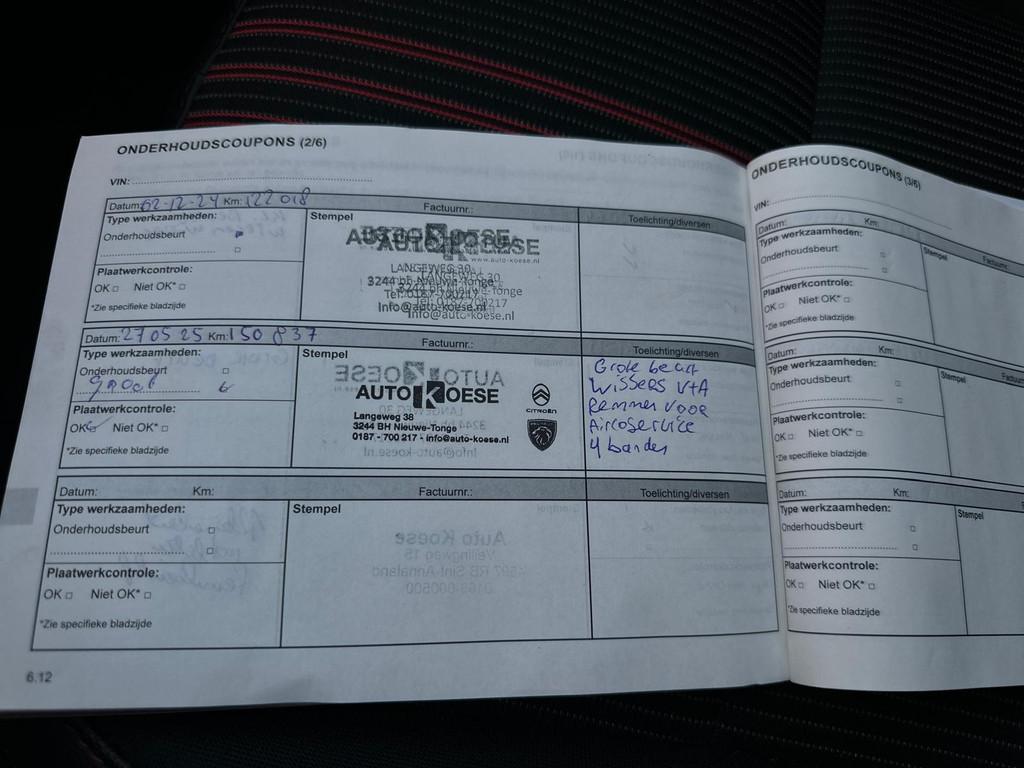 ONDERHOUDSCOUPONS (2/6)
VIN:
Datum: 02-12-24 Km: 122018 Factuurnr.:
Type werkzaamheden:
Onderhoudsbeurt
Plaatwerkcontrole:
OK Niet OK*
*Zie specifieke bladzijde
Stempel
AUTO KOESE
www.auto-koese.nl
LANGEWEG 30
3244 BH Nieuwe-Tonge
Tel: 0187-700217
Info@auto-koese.nl
Toelichting/diversen
Datum: 27 05 25 Km: 150 837 Factuurnr.:
Type werkzaamheden:
Onderhoudsbeurt
groot
Plaatwerkcontrole:
OK Niet OK*
*Zie specifieke bladzijde
Stempel
AUTO KOESE
Langeweg 38
3244 BH Nieuwe-Tonge
0187 - 700 217 - info@auto-koese.nl
CITROËN
Toelichting/diversen
Grote beurt
Wissers V+A
Remmen voor
Aircoservice
4 banden
Datum: Km: Factuurnr.:
Type werkzaamheden:
Onderhoudsbeurt
Plaatwerkcontrole:
OK Niet OK*
*Zie specifieke bladzijde
Stempel
Toelichting/diversen
6.12
ONDERHOUDSCOUPONS (3/6)
VIN:
Datum: Km: Factuurnr.
Type werkzaamheden:
Onderhoudsbeurt
Plaatwerkcontrole:
OK Niet OK*
*Zie specifieke bladzijde
Stempel
Datum: Km: Factuur
Type werkzaamheden:
Onderhoudsbeurt
Plaatwerkcontrole:
OK Niet OK*
*Zie specifieke bladzijde
Stempel
Datum: Km:
Type werkzaamheden:
Onderhoudsbeurt
Plaatwerkcontrole:
OK Niet OK*
*Zie specifieke bladzijde
Stempel